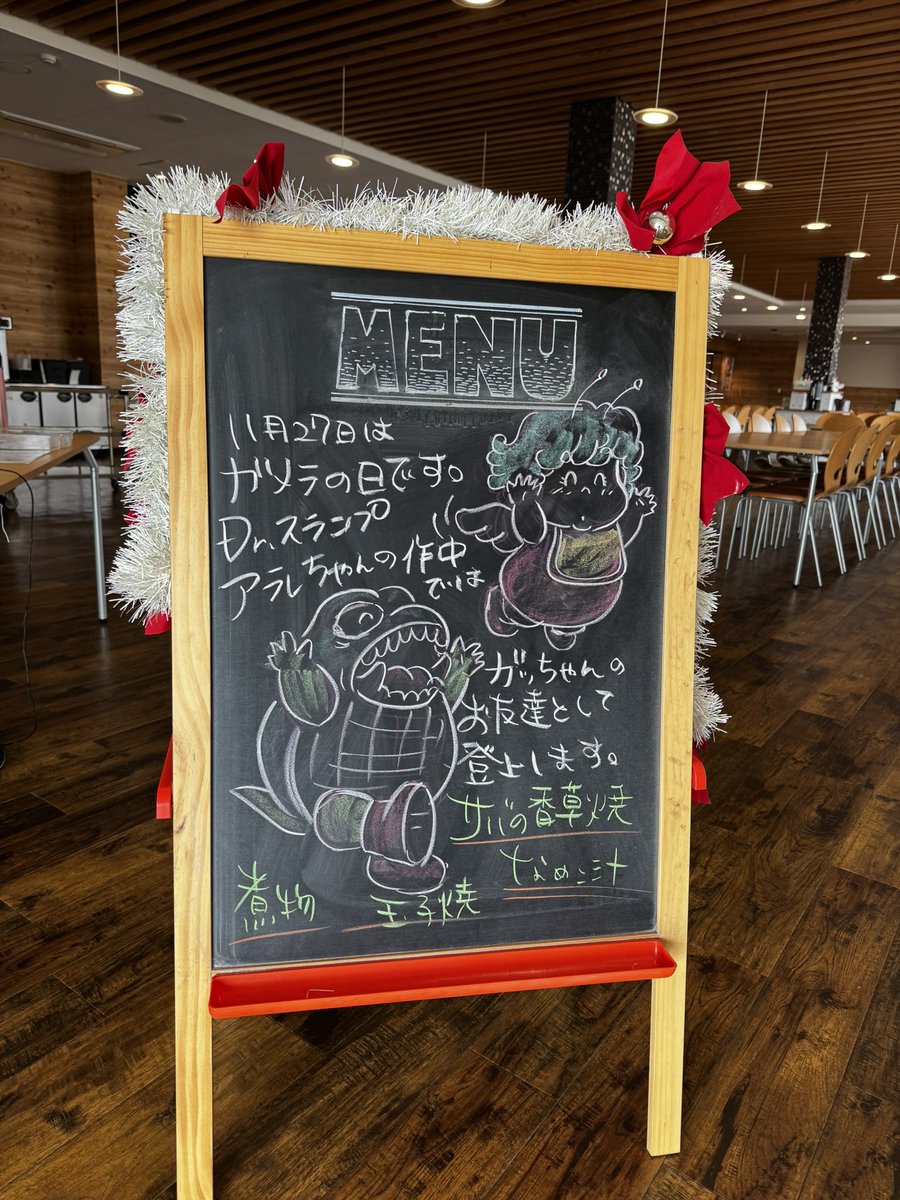 MENU
11月27日は
ガメラの日です。
Dr.スランプ
アラレちゃんの作中
では
ガッちゃんの
お友達として
登上します。
サバの香草焼
なめこ汁
煮物
玉子焼